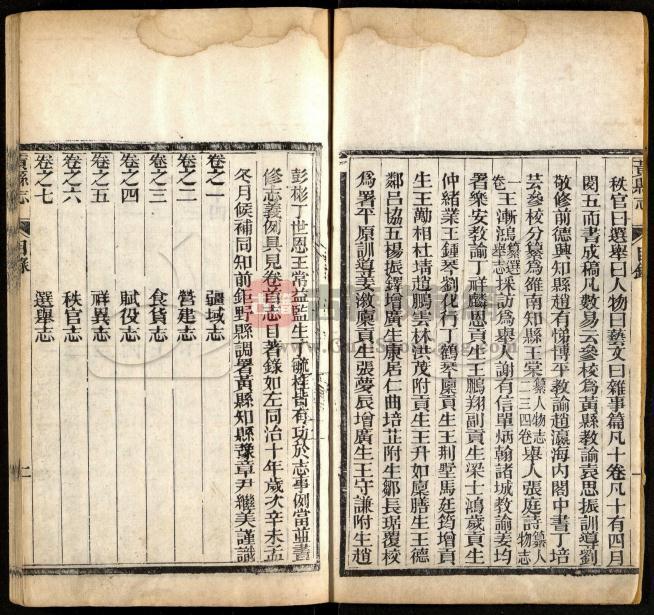 黃縣志
目錄
秩官曰選舉曰人物曰藝文曰雜事篇凡十卷凡十有四月
閱五而書成稿凡數易云參校為黃縣教諭袁思振訓導劉
敬修前德興知縣趙有悌博平教諭趙瀛海內閣中書丁培
芸參校分纂為雒南知縣王棠纂人物志二三四卷舉人張庭詩纂人物志一
卷王漸鴻纂選舉志採訪為舉人謝有信單炳翰諸城教諭姜均
署樂安教諭丁祥麟恩貢生王鵬翔副貢生梁士鴻歲貢生
仲緒業王鍾琴劉化行丁鶴琴廩貢生王荊墅馬廷筠增貢
生王勱相杜堉趙鵬雲林洪茂附貢生王升如廩膳生王德
鄰呂協五楊振鐸增廣生康居仁曲培芷附生鄒長琚覆校
為署平原訓導姜漵廩貢生張夢辰增廣生王守謙附生趙
彭彬丁世恩王常益監生丁毓桂皆有功於志事例當並書
修志義例具見卷首志目著錄如左同治十年歲次辛未孟
冬月候補同知前鉅野縣調署黃縣知縣豫章尹繼美謹識
卷之一 疆域志
卷之二 營建志
卷之三 食貨志
卷之四 賦役志
卷之五 祥異志
卷之六 秩官志
卷之七 選舉志
黃縣志
目錄
二